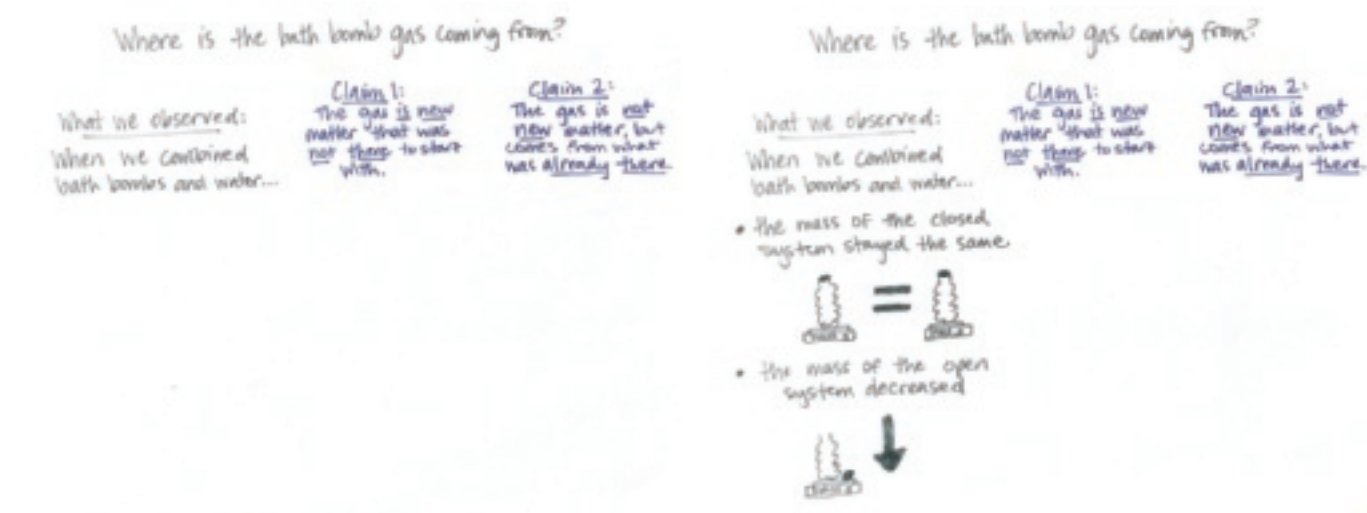 Where is the bath bomb gas coming from?
What we observed:
When we combined
bath bombs and water...
Claim 1:
The gas is new
matter that was
not there to start
with.
Claim 2:
The gas is not
new matter, but
comes from what
was already there.
Where is the bath bomb gas coming from?
What we observed:
When we combined
bath bombs and water...
• the mass of the closed
system stayed the same
=
• the mass of the open
system decreased
Claim 1:
The gas is new
matter that was
not there to start
with.
Claim 2:
The gas is not
new matter, but
comes from what
was already there.